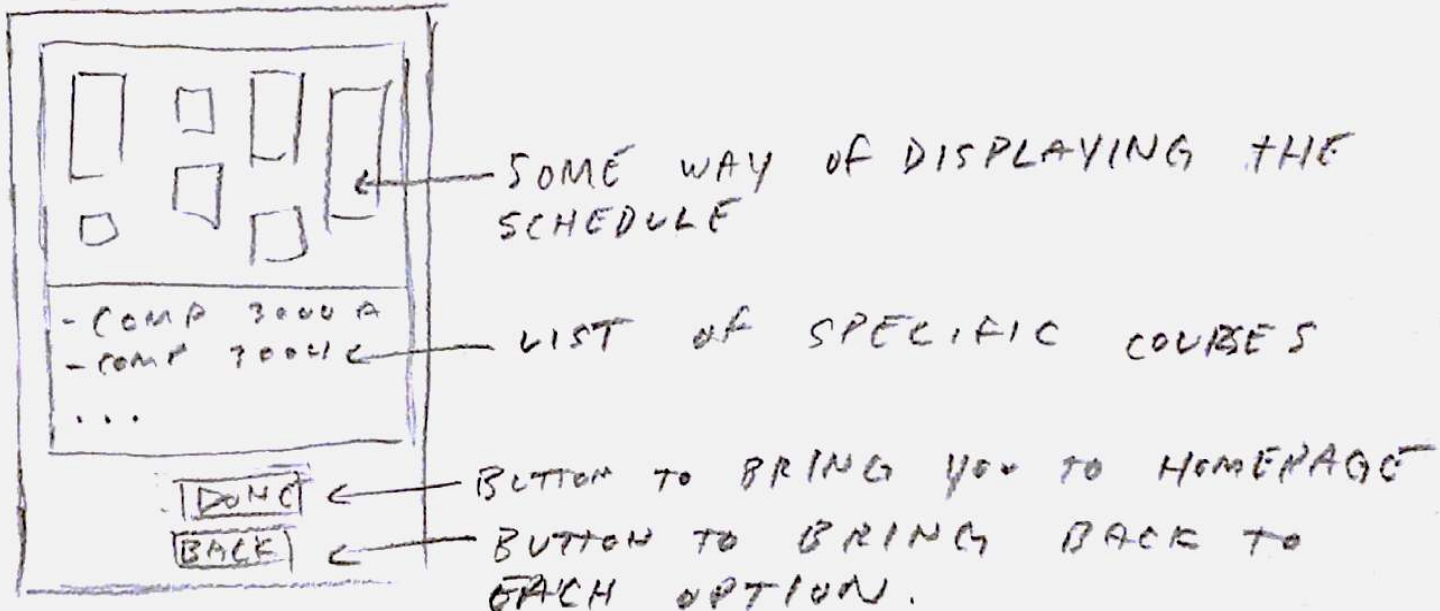 SOME WAY OF DISPLAYING THE
SCHEDULE
- COMP 3000 A
- COMP 3004
LIST OF SPECIFIC COURSES
...
DONE
BUTTON TO BRING YOU TO HOMEPAGE
BACK
BUTTON TO BRING BACK TO
EACH OPTION.